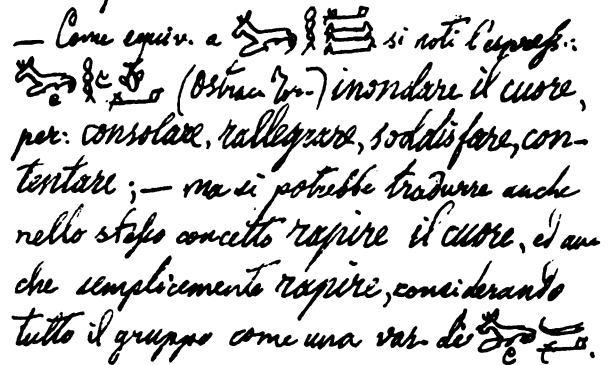 — Come equiv. a si noti l'espress.:
(Ostraca Tor.) inondare il cuore,
per: consolare, rallegrare, soddisfare, con-
tentare; — ma si potrebbe tradurre anche
nello stesso concetto rapire il cuore, ed an-
che semplicemente rapire, considerando
tutto il gruppo come una var. di